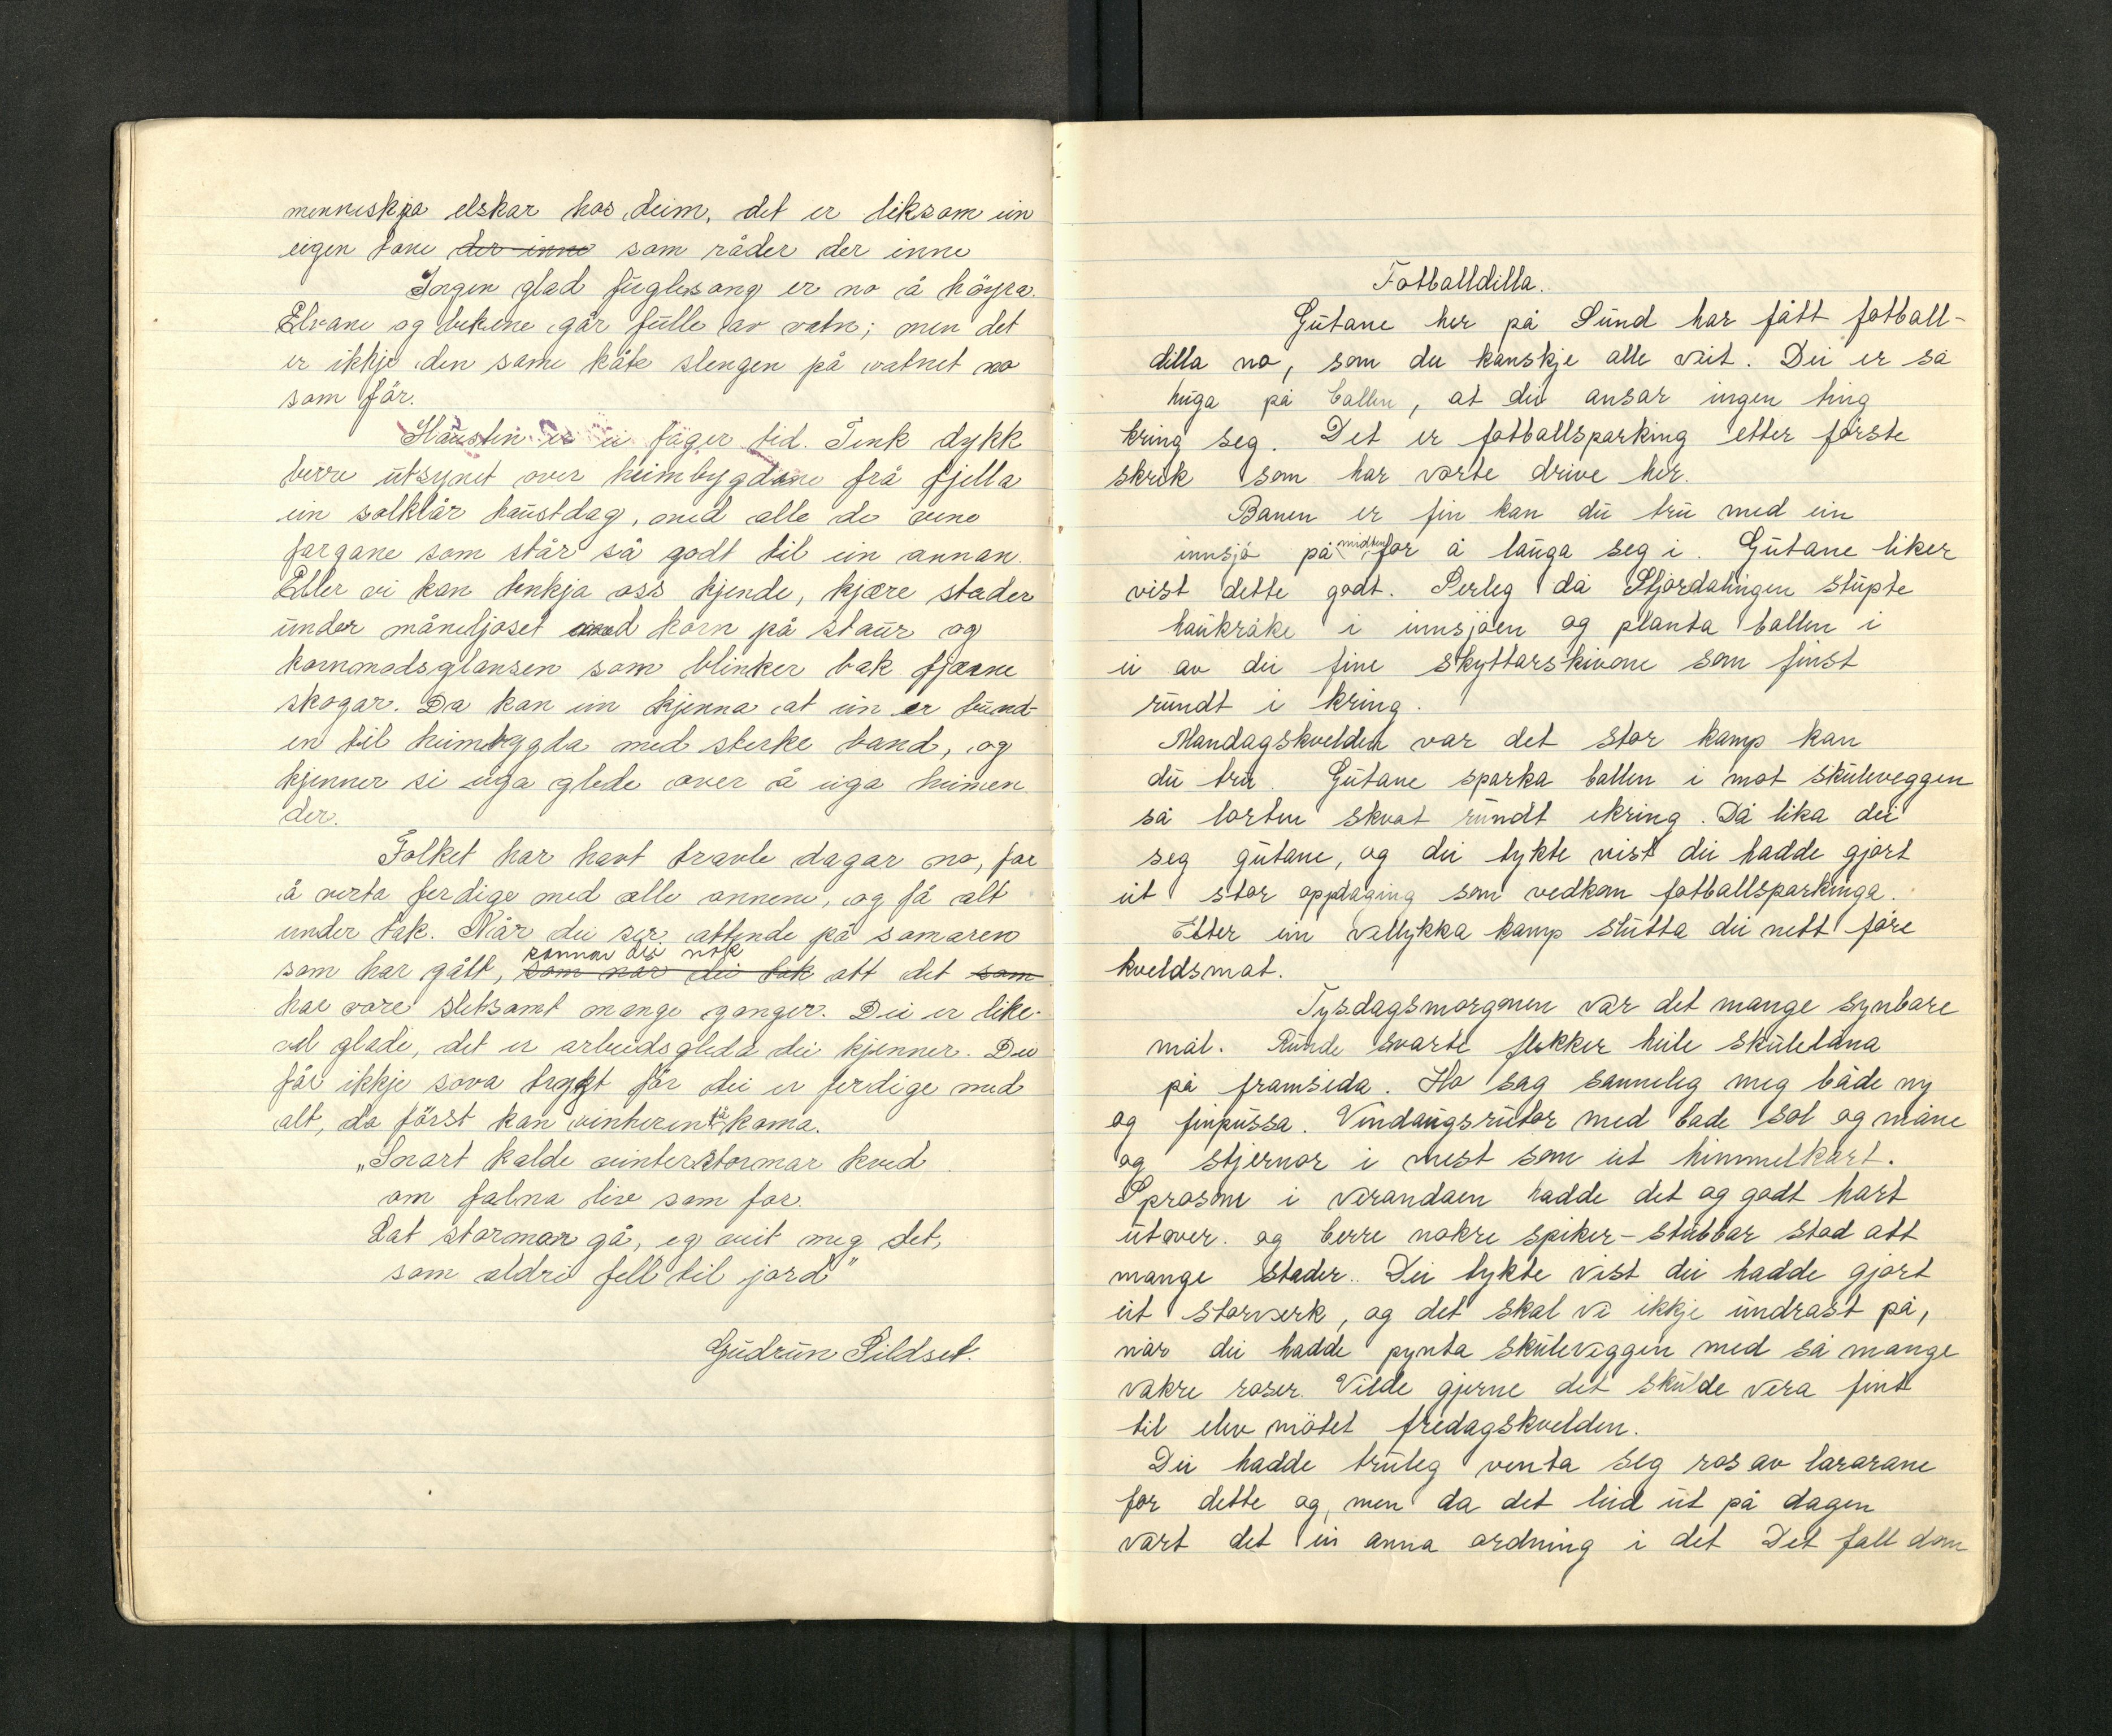 menneskja elskar hos deim, det er liksom ein
eigen tone der inne som råder der inne
Ingen glad fuglesong er no å höyra.
Elvane og bekkene går fulle av vatn; men det
er ikkje den same kåte slengen på vatnet no
som för.
Hausten er ei fager tid. Tenk dykk
berre utsynet over heimbygdene frå fjella
ein solklår haustdag, med alle de rene
fargane som står så godt til ein annan.
Eller vi kan tenkja oss kjende, kjære stader
under måneljoset med korn på staur og
kornmodsglansen som blinker bak fjerne
skogar. Da kan ein kjenna at ein er bund-
en til heimbygda med sterke band, og
kjenner si eiga glede over å eiga heimen
der.
Folket har havt travle dagar no, for
å verta ferdige med alle onnene, og få alt
under tak. Når dei ser attende på somaren
kannar dei nok
som har gått, som når dei tok att det som
har vore slitsamt mange ganger. Dei er like-
vel glade, det er arbeidsgleda dei kjenner. Dei
får ikkje sova trygt för dei er ferdige med
alt, da först kan vinteren få koma.
"Snart kalde vinterstormar kved
om falna liv som for.
Lat stormar gå, eg veit meg det,
som aldri fell til jord"
Gudrun Sildset.
Fotballdilla.
Gutane her på Sund har fått fotball-
dilla no, som de kanskje alle veit. Dei er så
huga på ballen, at dei ansar ingen ting
kring seg. Det er fotballsparking etter förste
skrik som har vorte drive her.
Banen er fin kan du tru med ein
innsjö på midten for å lauga seg i. Gutane liker
vist dette godt. Serleg då Stjördalingen stupte
haukråke i innsjöen og planta ballen i
ei av dei fine skyttarskivone som finst
rundt i kring.
Mandagskvelden var det stor kamp kan
du tru. Gutane sparka ballen i mot skuleveggen
så lorten skvat rundt ikring. Då lika dei
seg gutane, og dei tykte vist dei hadde gjort
eit stor oppdaging som vedkom fotballsparkinga.
Etter ein vellykka kamp slutta dei nett före
kveldsmat.
Tysdagsmorgonen var det mange synbare
mål. Runde svarte flekker heile skulelåna
på framsida. Ho såg sanneleg meg både ny
og finpussa. Vindaugsrutor med både sol og måne
og stjernor i mest som eit himmelkart.
Sprosone i verandaen hadde det og godt hart
utover. og berre nokre spiker-stubbar stod att
mange stader. Dei tykte vist dei hadde gjort
eit storverk, og det skal vi ikkje undrast på,
når dei hadde pynta skuleveggen med så mange
vakre roser. Vilde gjerne det skulde vera fint
til elev mötet fredagskvelden.
Dei hadde truleg venta seg ros av lærarane
for dette og, men da det leid ut på dagen
vart det ei anna ordning i det Det fall dom